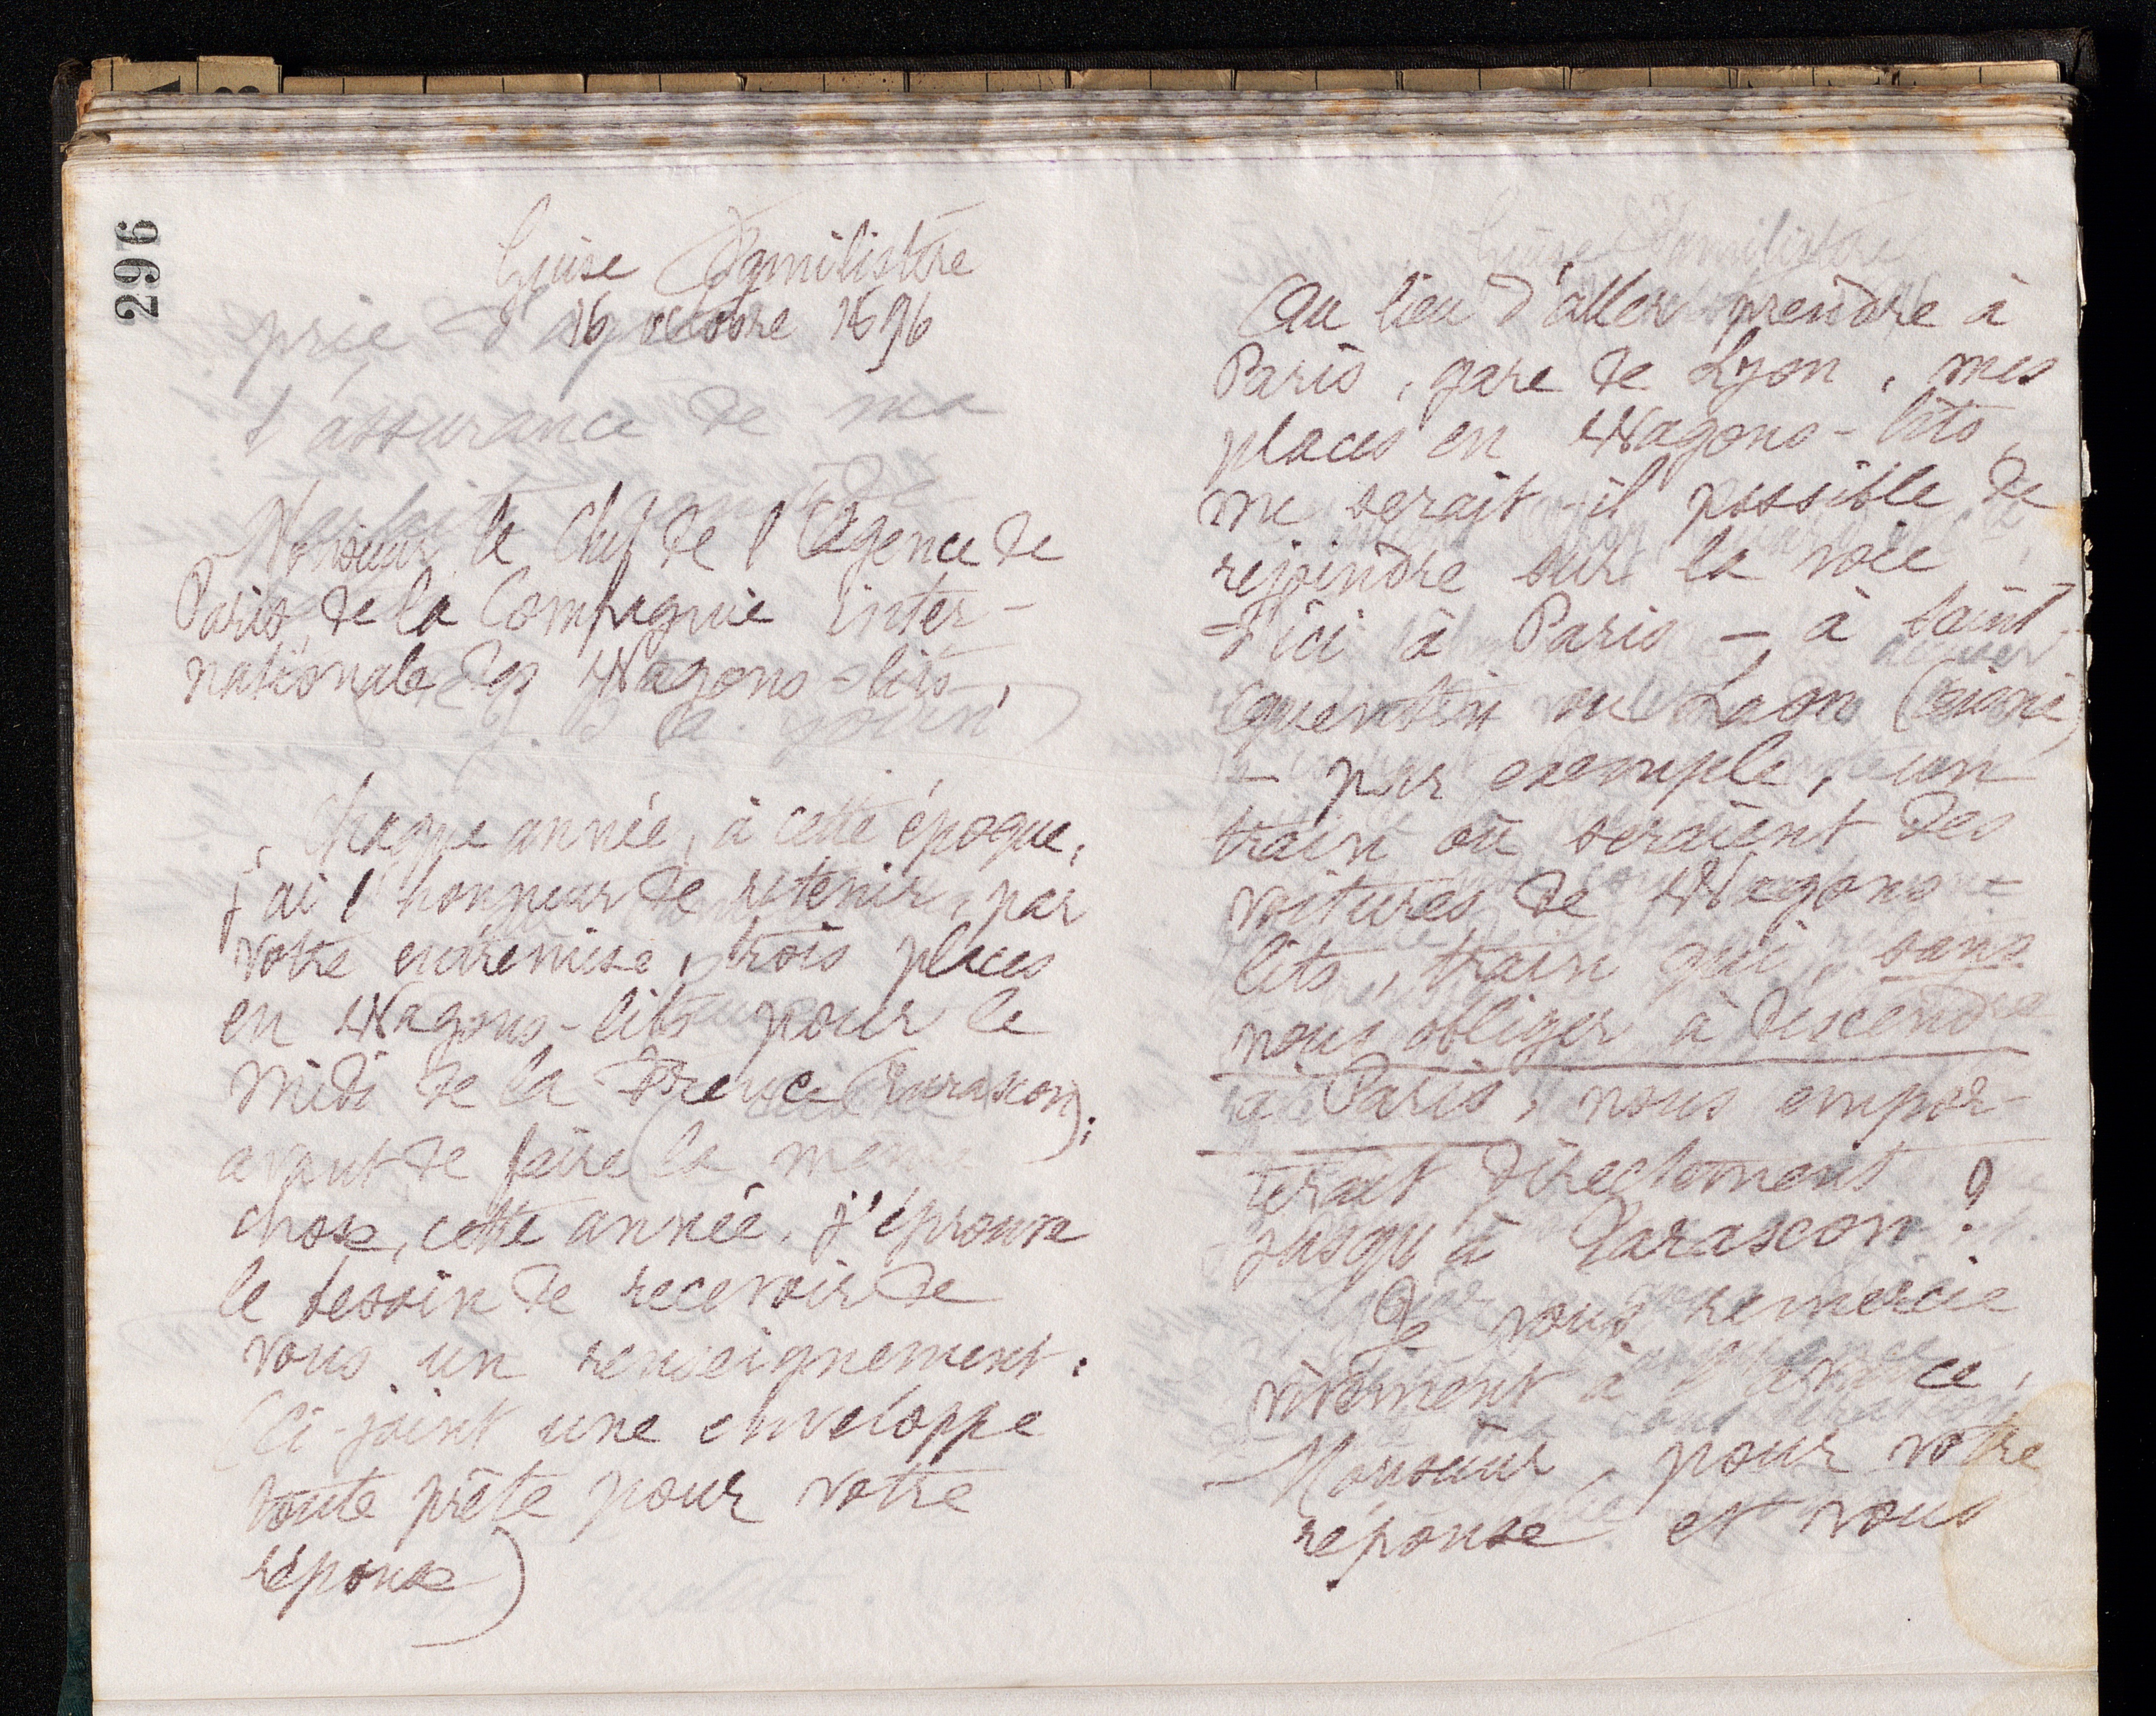 296
Guise Familistère
16 octobre 1896
prie d'agréer
l'assurance de ma
Monsieur le Chef de l'Agence de
Paris, de la Compagnie Inter-
nationale des Wagons-lits,
Chaque année, à cette époque,
j'ai l'honneur de retenir, par
votre entremise, trois places
en Wagons-lits pour le
Midi de la France (Tarascon);
avant de faire la même
chose, cette année, j'éprouve
le besoin de recevoir de
vous un renseignement:
(Ci-joint une enveloppe
toute prête pour votre
réponse)
Au lieu d'aller prendre à
Paris, gare de Lyon, mes
places en Wagons-lits,
me serait-il possible de
rejoindre sur la voie
d'ici à Paris - à Saint
Quentin ou Laon (Aisne)
- par exemple, un
train où seraient des
voitures de Wagons-
lits, train qui, sans
nous obliger à descendre
à Paris, nous empor-
terait directement
jusqu'à Tarascon?
Je vous remercie
vivement à l'avance,
Monsieur, pour votre
réponse et vous